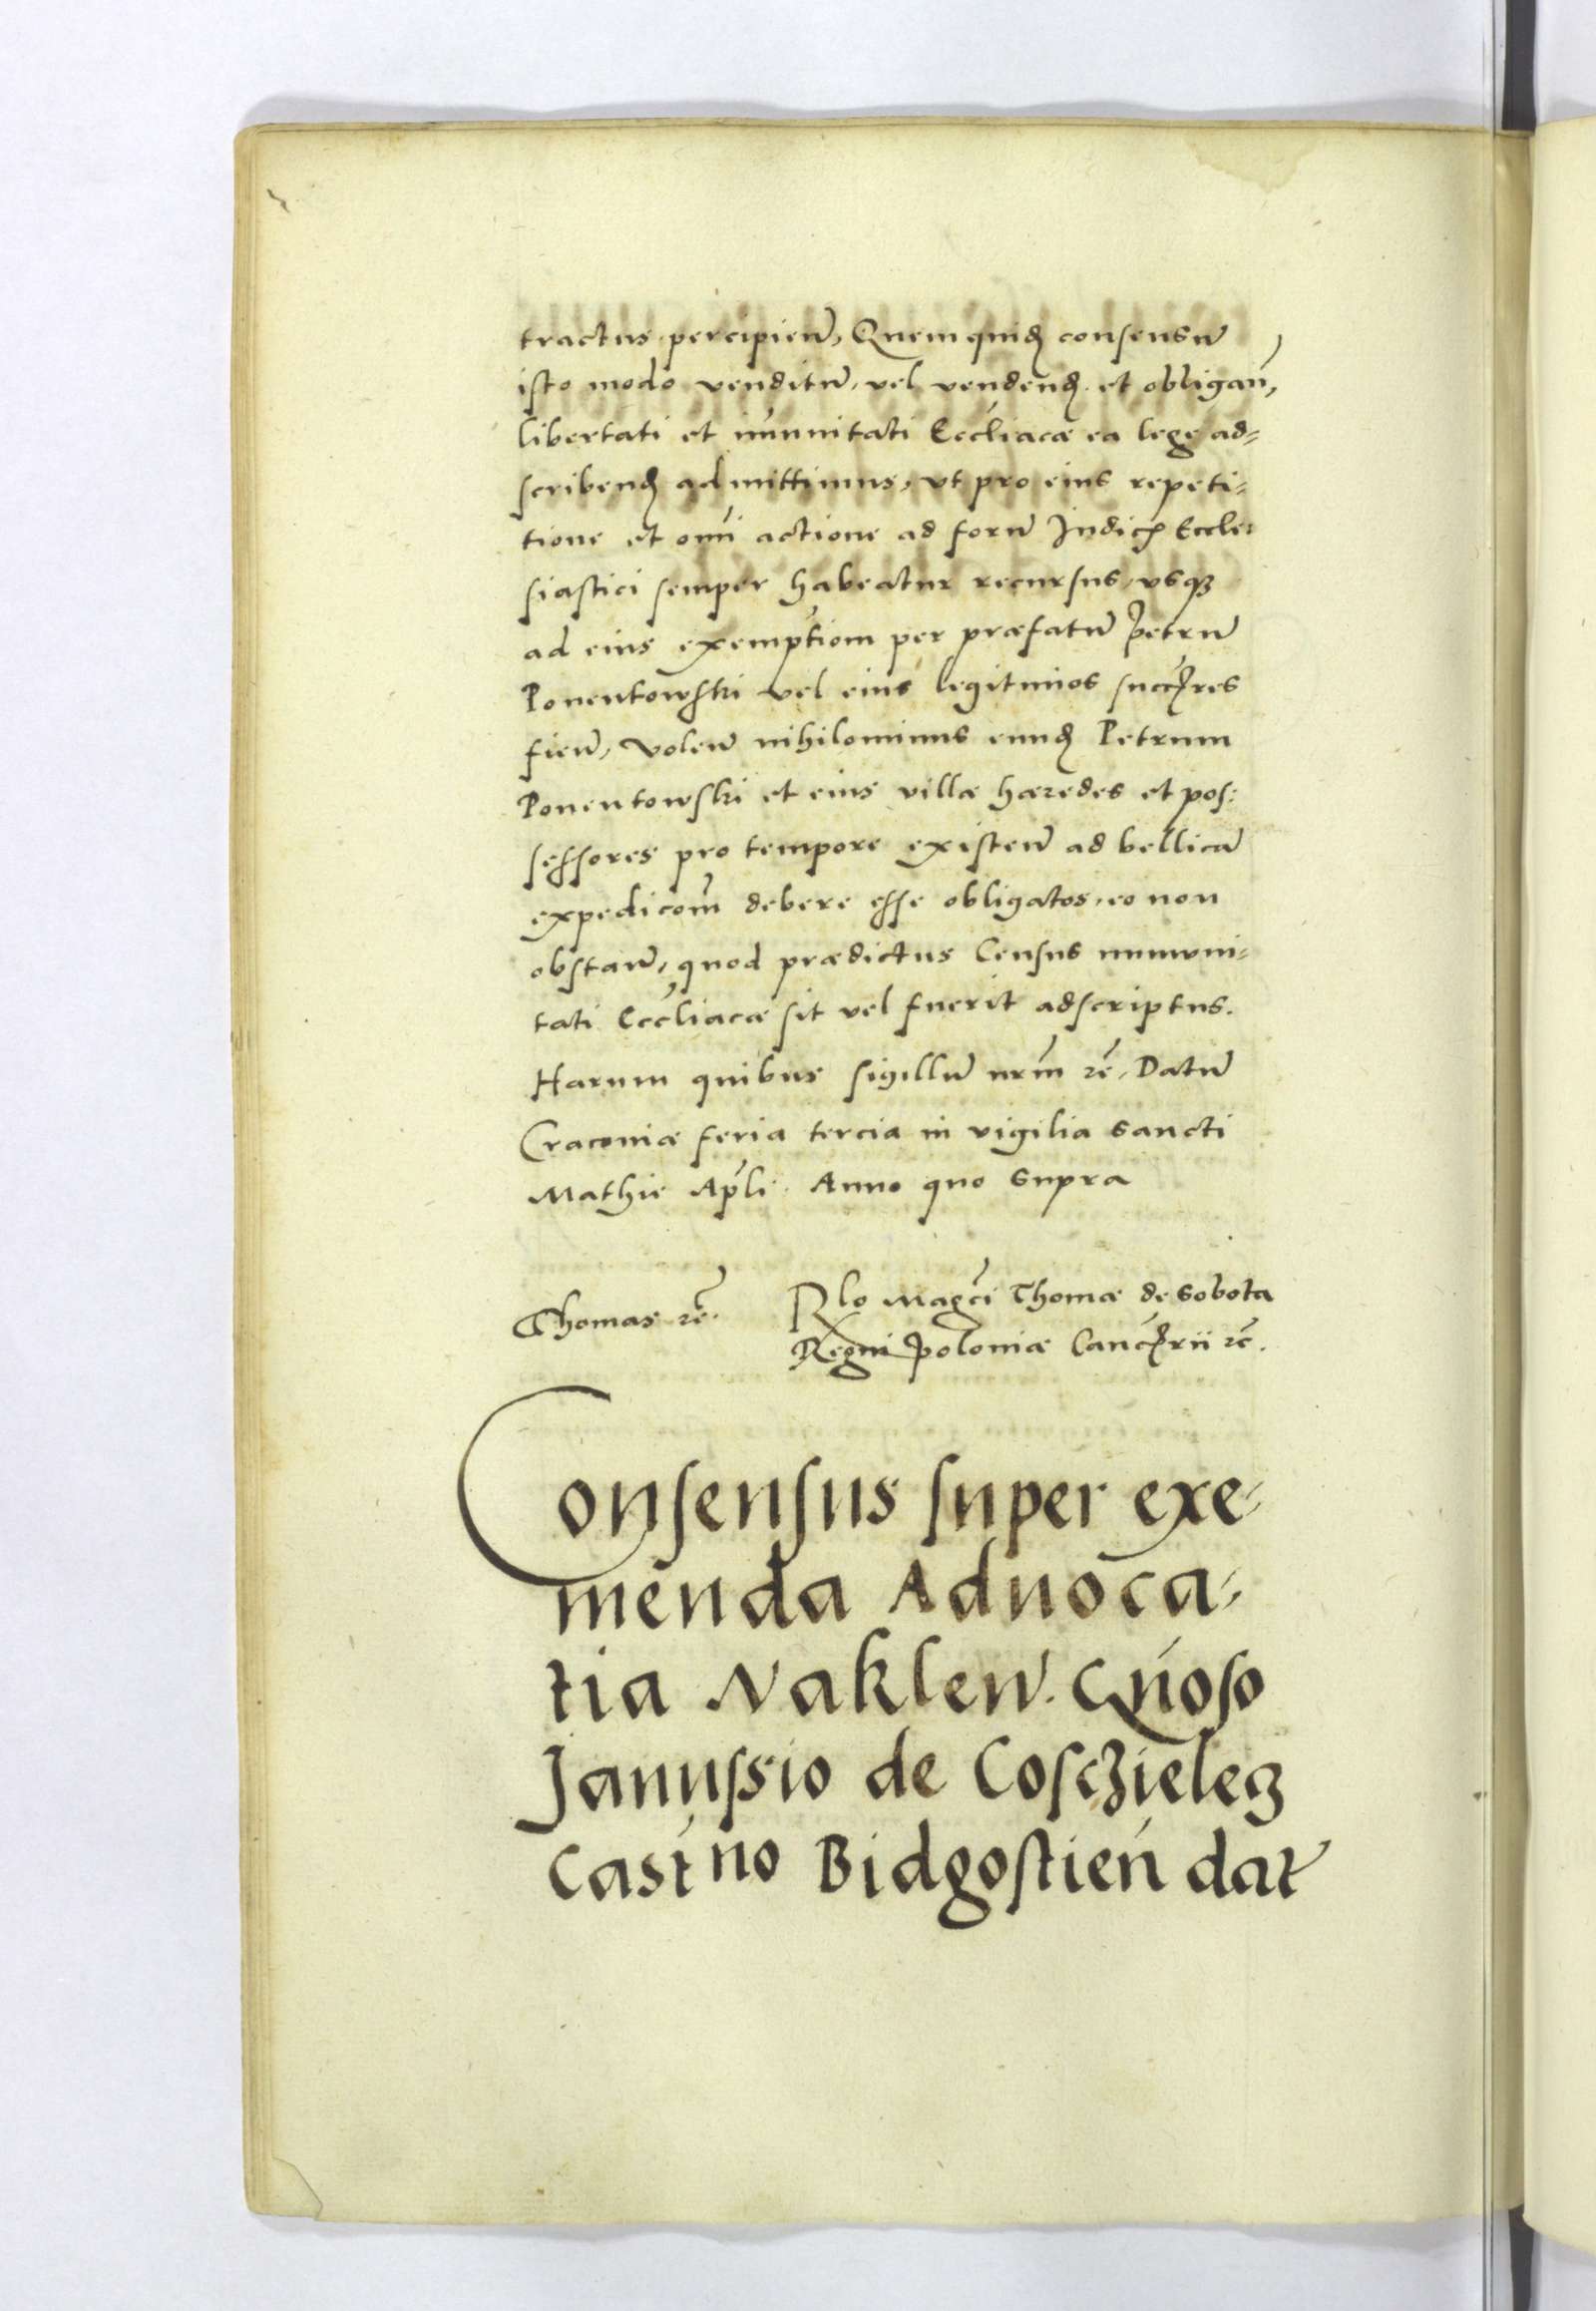 tractus percipien̄, Quem quid̄ consensū
isto modo venditū, vel vendend̄ et obligan̄,
libertati et im̄unitati Eccl̄iacæ ea lege ad=
scribend̄ admittimus, vt pro eius repeti=
tione et omni actione ad forū Judicȩ Eccle=
siastici semper habeatur recursus, vsqȝ
ad eius exemptiom̄ per præfatū Petrū
Ponentowski vel eius legitimos succ̄res
fien̄, Volen̄ nihilominus eund̄ Petrum
Ponentowski et eius villæ hæredes et pos=
sessores pro tempore existen̄ ad bellicā
expedicom̄ debere esse obligatos, eo non
obstan̄, quod prædictus Census immuni=
tati Eccl̄iacæ sit vel fuerit adscriptus.
Harum quibus sigillū nrm̄ rc̄. Datū
Cracouiæ feria tercia in vigilia sancti
Mathie Apl̄i. Anno quo supra
Thomas rc̄.
Rlo Magc̄i Thomæ de Sobota
Regni Poloniæ Canc̄rii rc̄.
Consensus super exe=
menda Aduoca=
tia Naklen̄. Gn̄oso
Janussio de Cosczielecz
Castno Bidgostien̄ dat̄